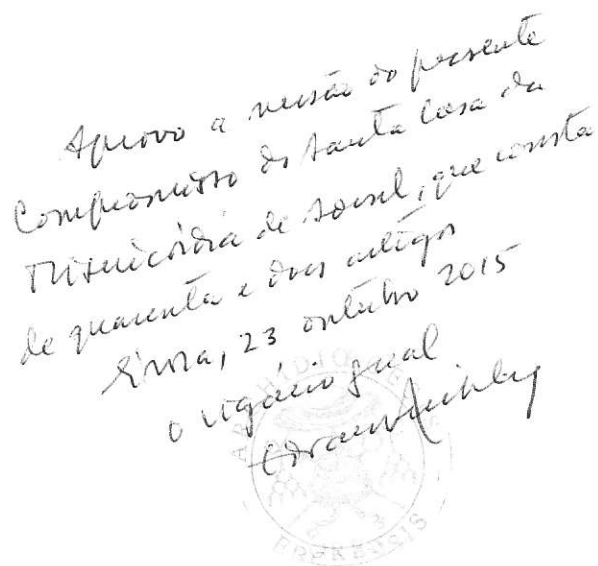 Aprovo a revisão do presente
Compromisso da Santa Casa da
Misericórdia de Sousel, que consta
de quarenta e dois artigos
Évora, 23 outubro 2015
O vigário geral